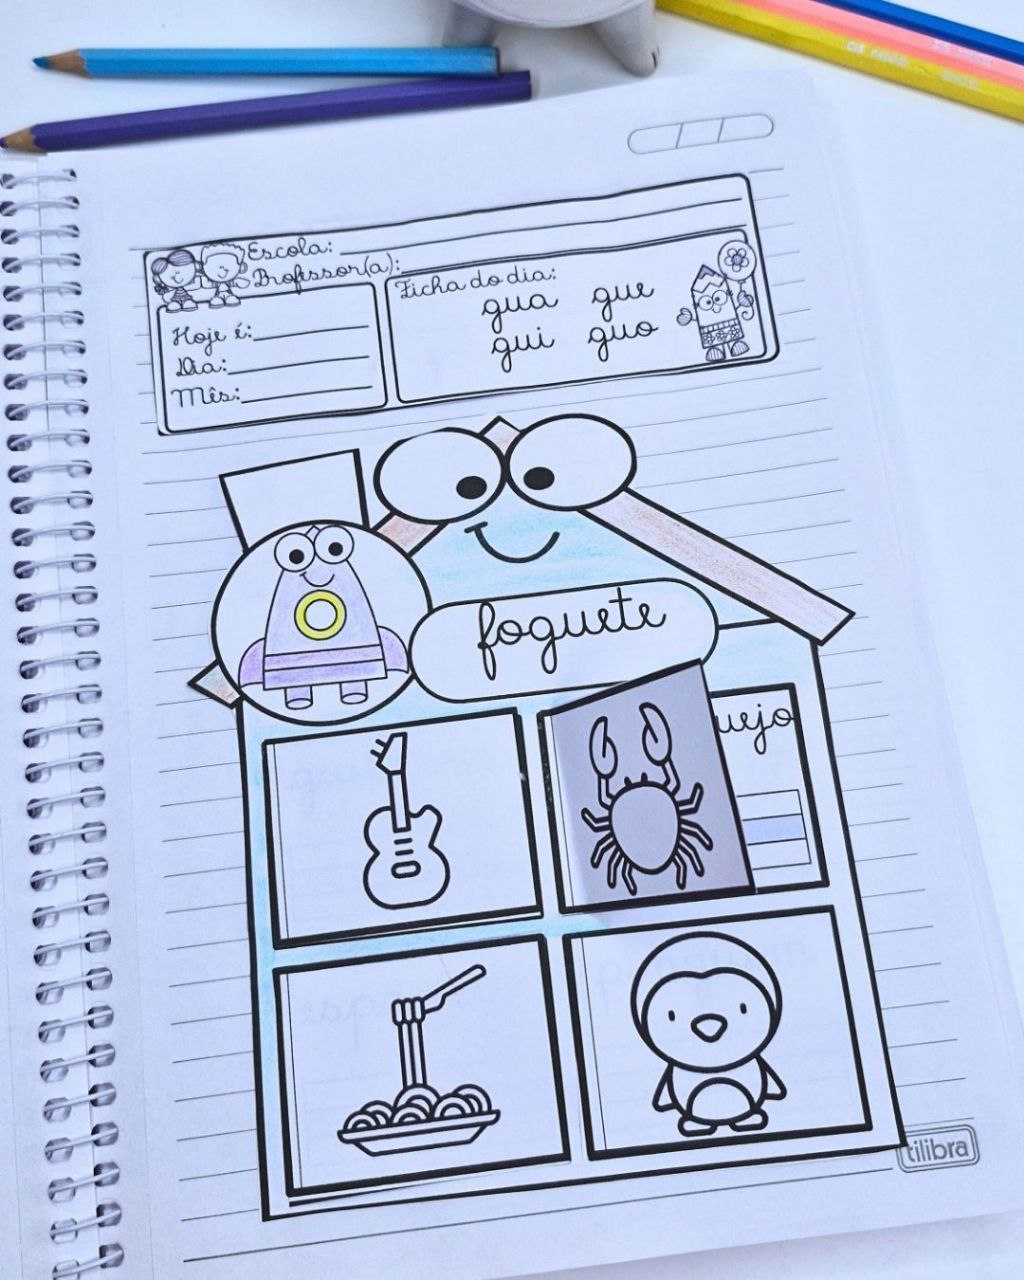 Escola:
Professor(a):
Ficha do dia:
gua gue
gui guo
Hoje é:
Dia:
Mês:
foguete
uejo
tilibra